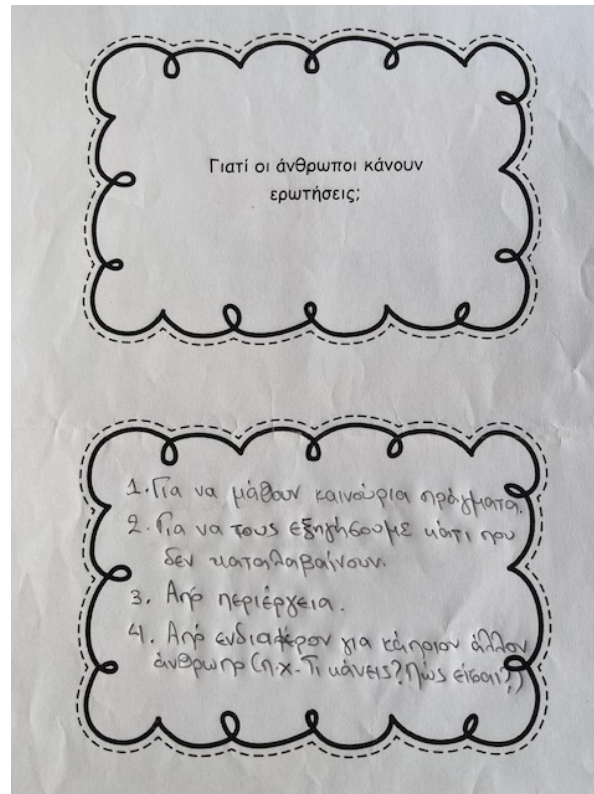 Γιατί οι άνθρωποι κάνουν
ερωτήσεις;
1. Για να μάθουν καινούρια πράγματα.
2. Για να τους εξηγήσουμε κάτι που
δεν καταλαβαίνουν.
3. Από περιέργεια.
4. Από ενδιαφέρον για κάποιον άλλον
άνθρωπο (π.χ. Τι κάνεις? Πώς είσαι?)